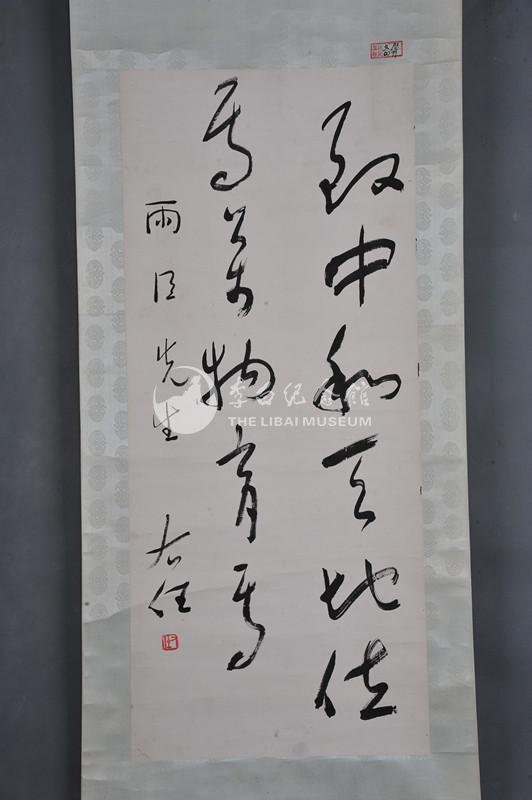 致中和天地位
焉萬物育焉
雨臣先生
右任
李白纪念館
THE LIBAI MUSEUM